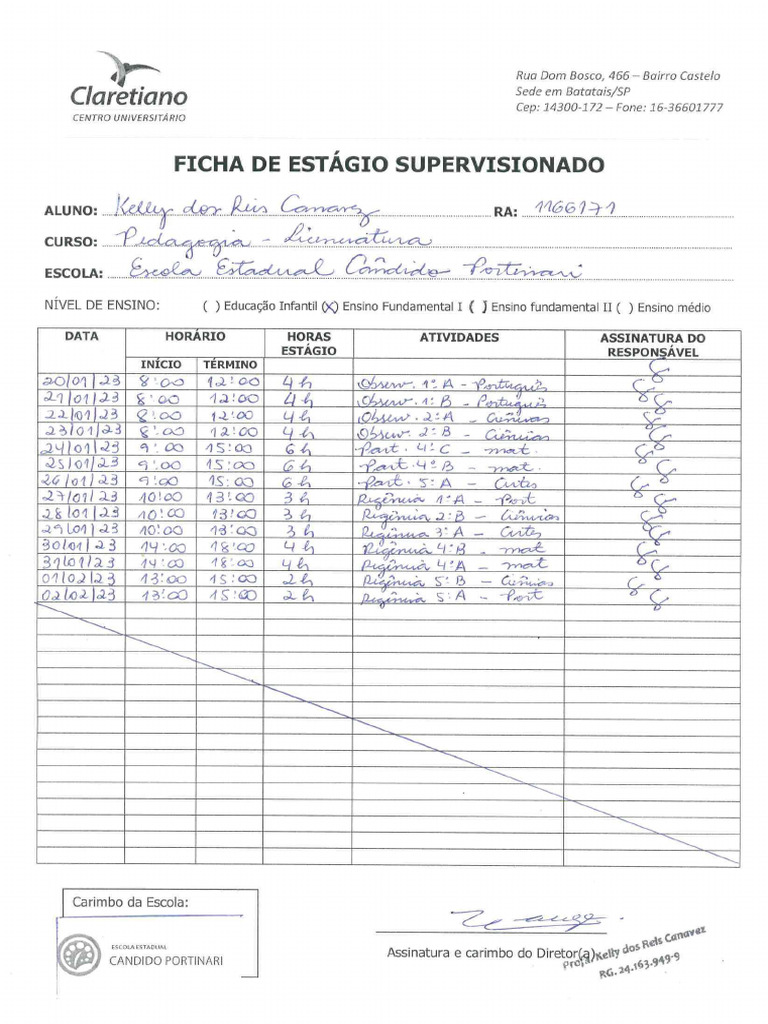 Claretiano
CENTRO UNIVERSITÁRIO
Rua Dom Bosco, 466 – Bairro Castelo
Sede em Batatais/SP
Cep: 14300-172 – Fone: 16-36601777
FICHA DE ESTÁGIO SUPERVISIONADO
ALUNO: Kelly dos Reis Canavez RA: 1166171
CURSO: Pedagogia - Licenciatura
ESCOLA: Escola Estadual Cândido Portinari
NÍVEL DE ENSINO: ( ) Educação Infantil (X) Ensino Fundamental I ( ) Ensino fundamental II ( ) Ensino médio
DATA HORÁRIO HORAS ESTÁGIO ATIVIDADES ASSINATURA DO RESPONSÁVEL
INÍCIO TÉRMINO
20/01/23 8:00 12:00 4h Observ. 1º A - Português
21/01/23 8:00 12:00 4h Observ. 1º B - Português
22/01/23 8:00 12:00 4h Observ. 2º A - Ciências
23/01/23 8:00 12:00 4h Observ. 2º B - Ciências
24/01/23 9:00 15:00 6h Part. 4º C - mat.
25/01/23 9:00 15:00 6h Part. 4º B - mat.
26/01/23 9:00 15:00 6h Part. 5º A - Artes
27/01/23 10:00 13:00 3h Regência 1º A - Port
28/01/23 10:00 13:00 3h Regência 2º B - Ciências
29/01/23 10:00 13:00 3h Regência 3º A - Artes
30/01/23 14:00 18:00 4h Regência 4º B - mat
31/01/23 14:00 18:00 4h Regência 4º A - mat
01/02/23 13:00 15:00 2h Regência 5º B - Ciências
02/02/23 13:00 15:00 2h Regência 5º A - Port
Carimbo da Escola:
ESCOLA ESTADUAL
CANDIDO PORTINARI
Assinatura e carimbo do Diretor(a)
Profa. Kelly dos Reis Canavez
RG. 24.163.949-9